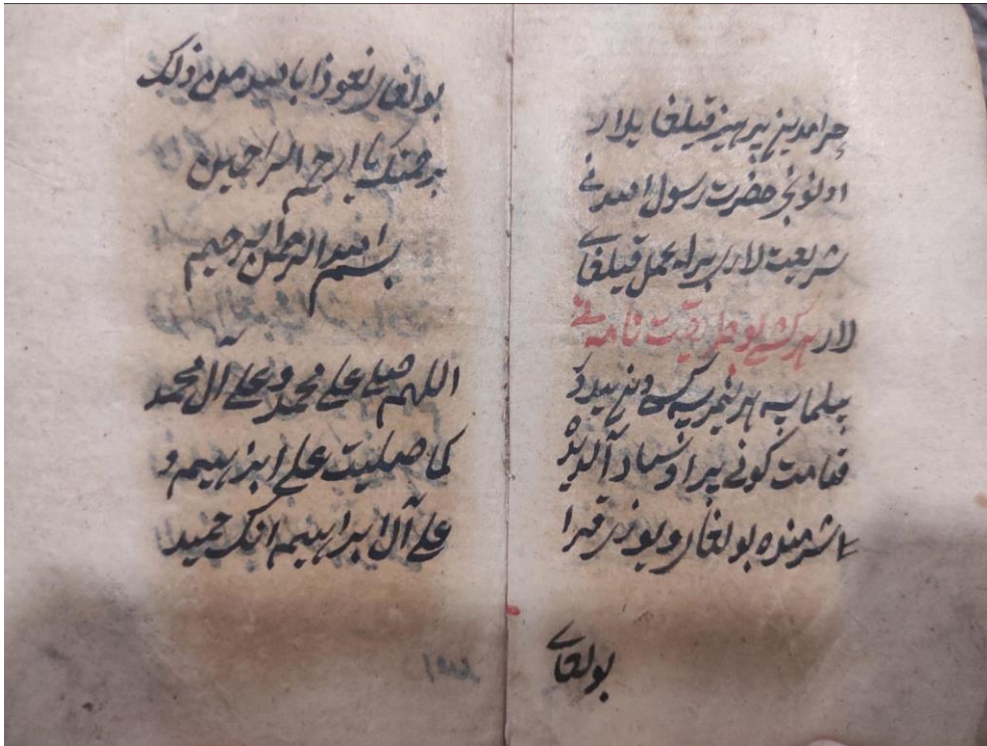 حرامدین پرهیز قیلغایلار
اولونجی حضرت رسول الله نی
شریعت لاری بیراه عمل قیلغای
لار هر کشی بو طریقت نامه نی
بیلماسه هر نیمرسه
قیامت کونی پیر اوستاد آلدیدا
شرمنده بولغای و یوزی قرا
بولغای
بولغای نعوذا بالله من ذلک
برحمتک یا ارحم الراحمین
بسم الله الرحمن الرحیم
اللهم صلی علی محمد و علی آل محمد
کما صلیت علی ابرهیم و
علی آل ابراهیم انک حمید